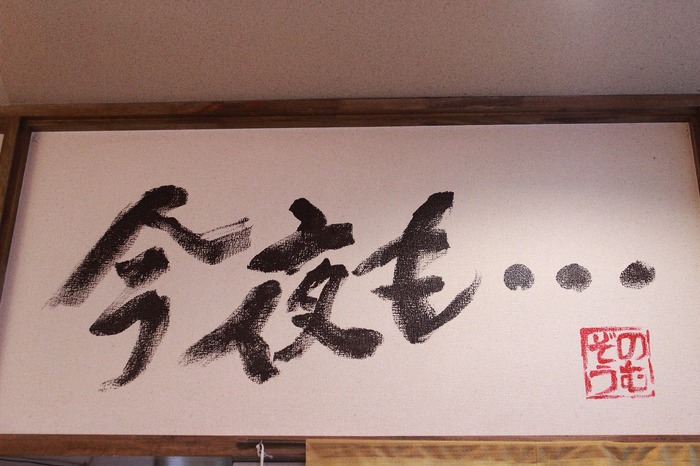 今夜も・・・
のむぞう